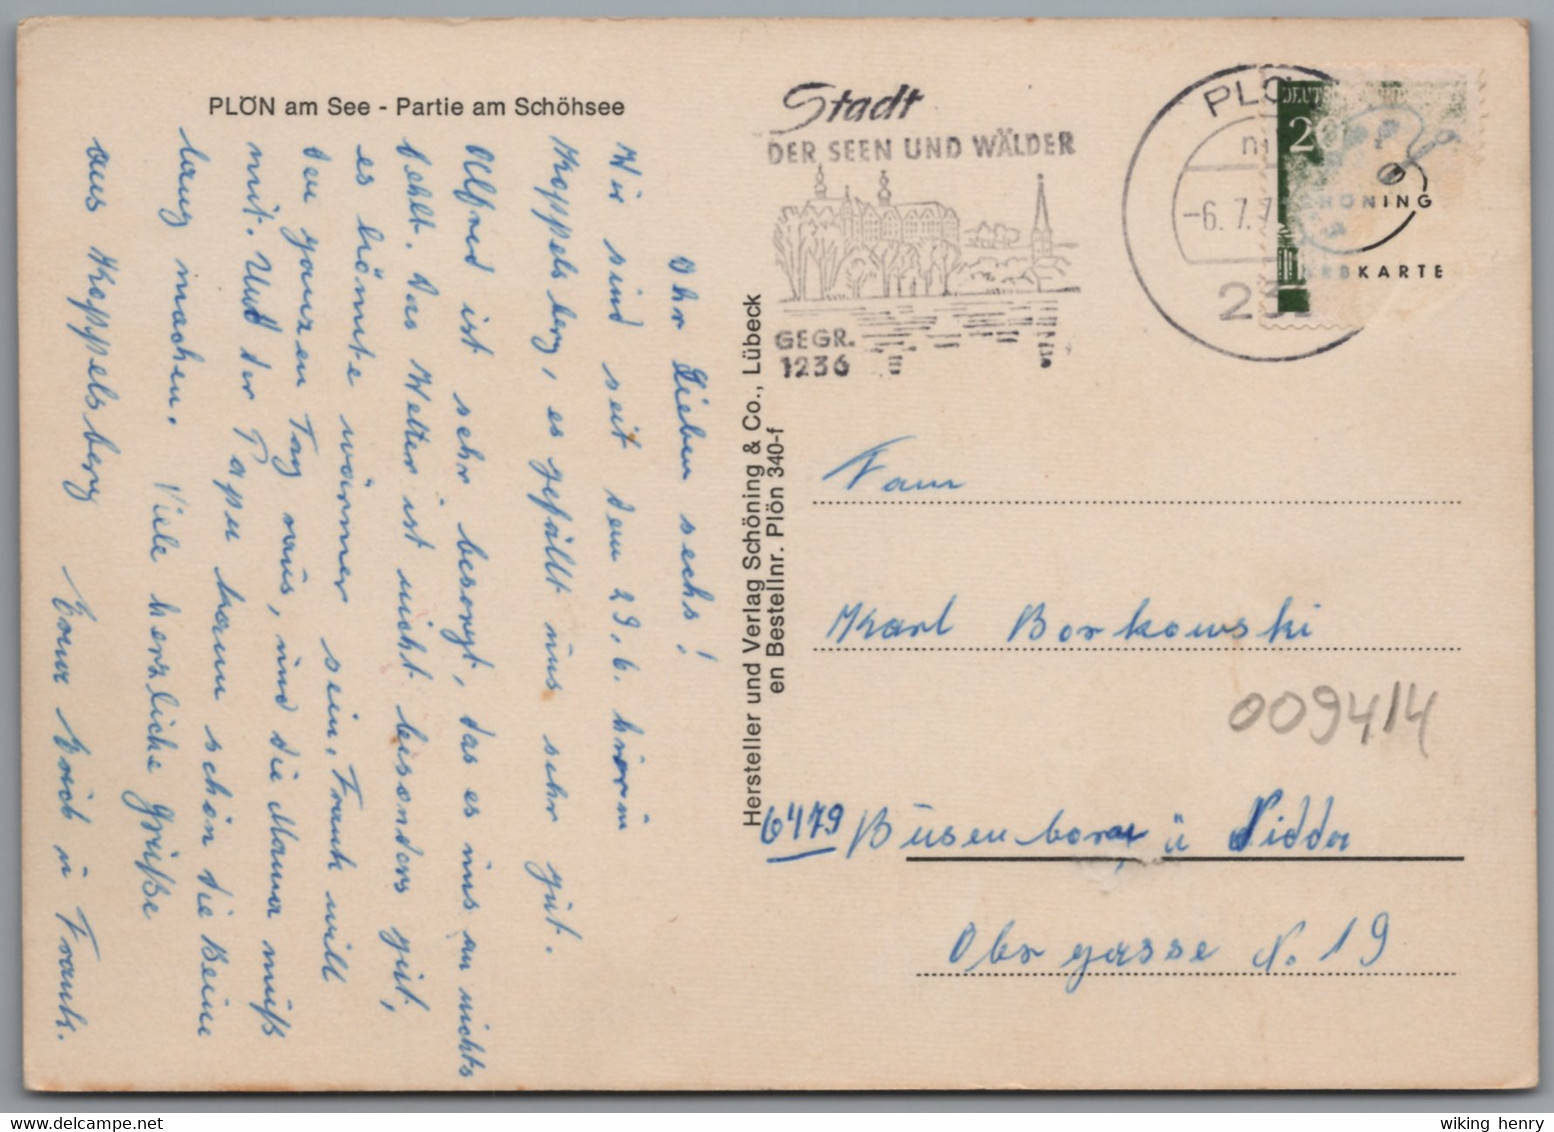 PLÖN am See - Partie am Schöhsee
Ihr Lieben sechs!
Wir sind seit dem 29.6. hier in
Koppelsberg, es gefällt uns sehr gut.
Alfred ist sehr besorgt, das es uns an nichts
fehlt. Das Wetter ist nicht besonders gut,
es könnte wärmer sein. Frank will
den ganzen Tag raus, und die Mama muß
mit. Und der Papa kann schon die Beine
lang machen. Viele herzliche Grüße
aus Koppelsberg Eure Erich u Frank.
Hersteller und Verlag Schöning & Co., Lübeck
en Bestellnr. Plön 340-f
Stadt
DER SEEN UND WÄLDER
GEGR.
1236
PLÖ
-6. 7. 7
23
DEUTSCHE
20
SCHÖNING
KARTE
Fam
Karl Borkowski
009414
6479 Büsenborn ü Nidda
Obergasse N. 19
wiking henry